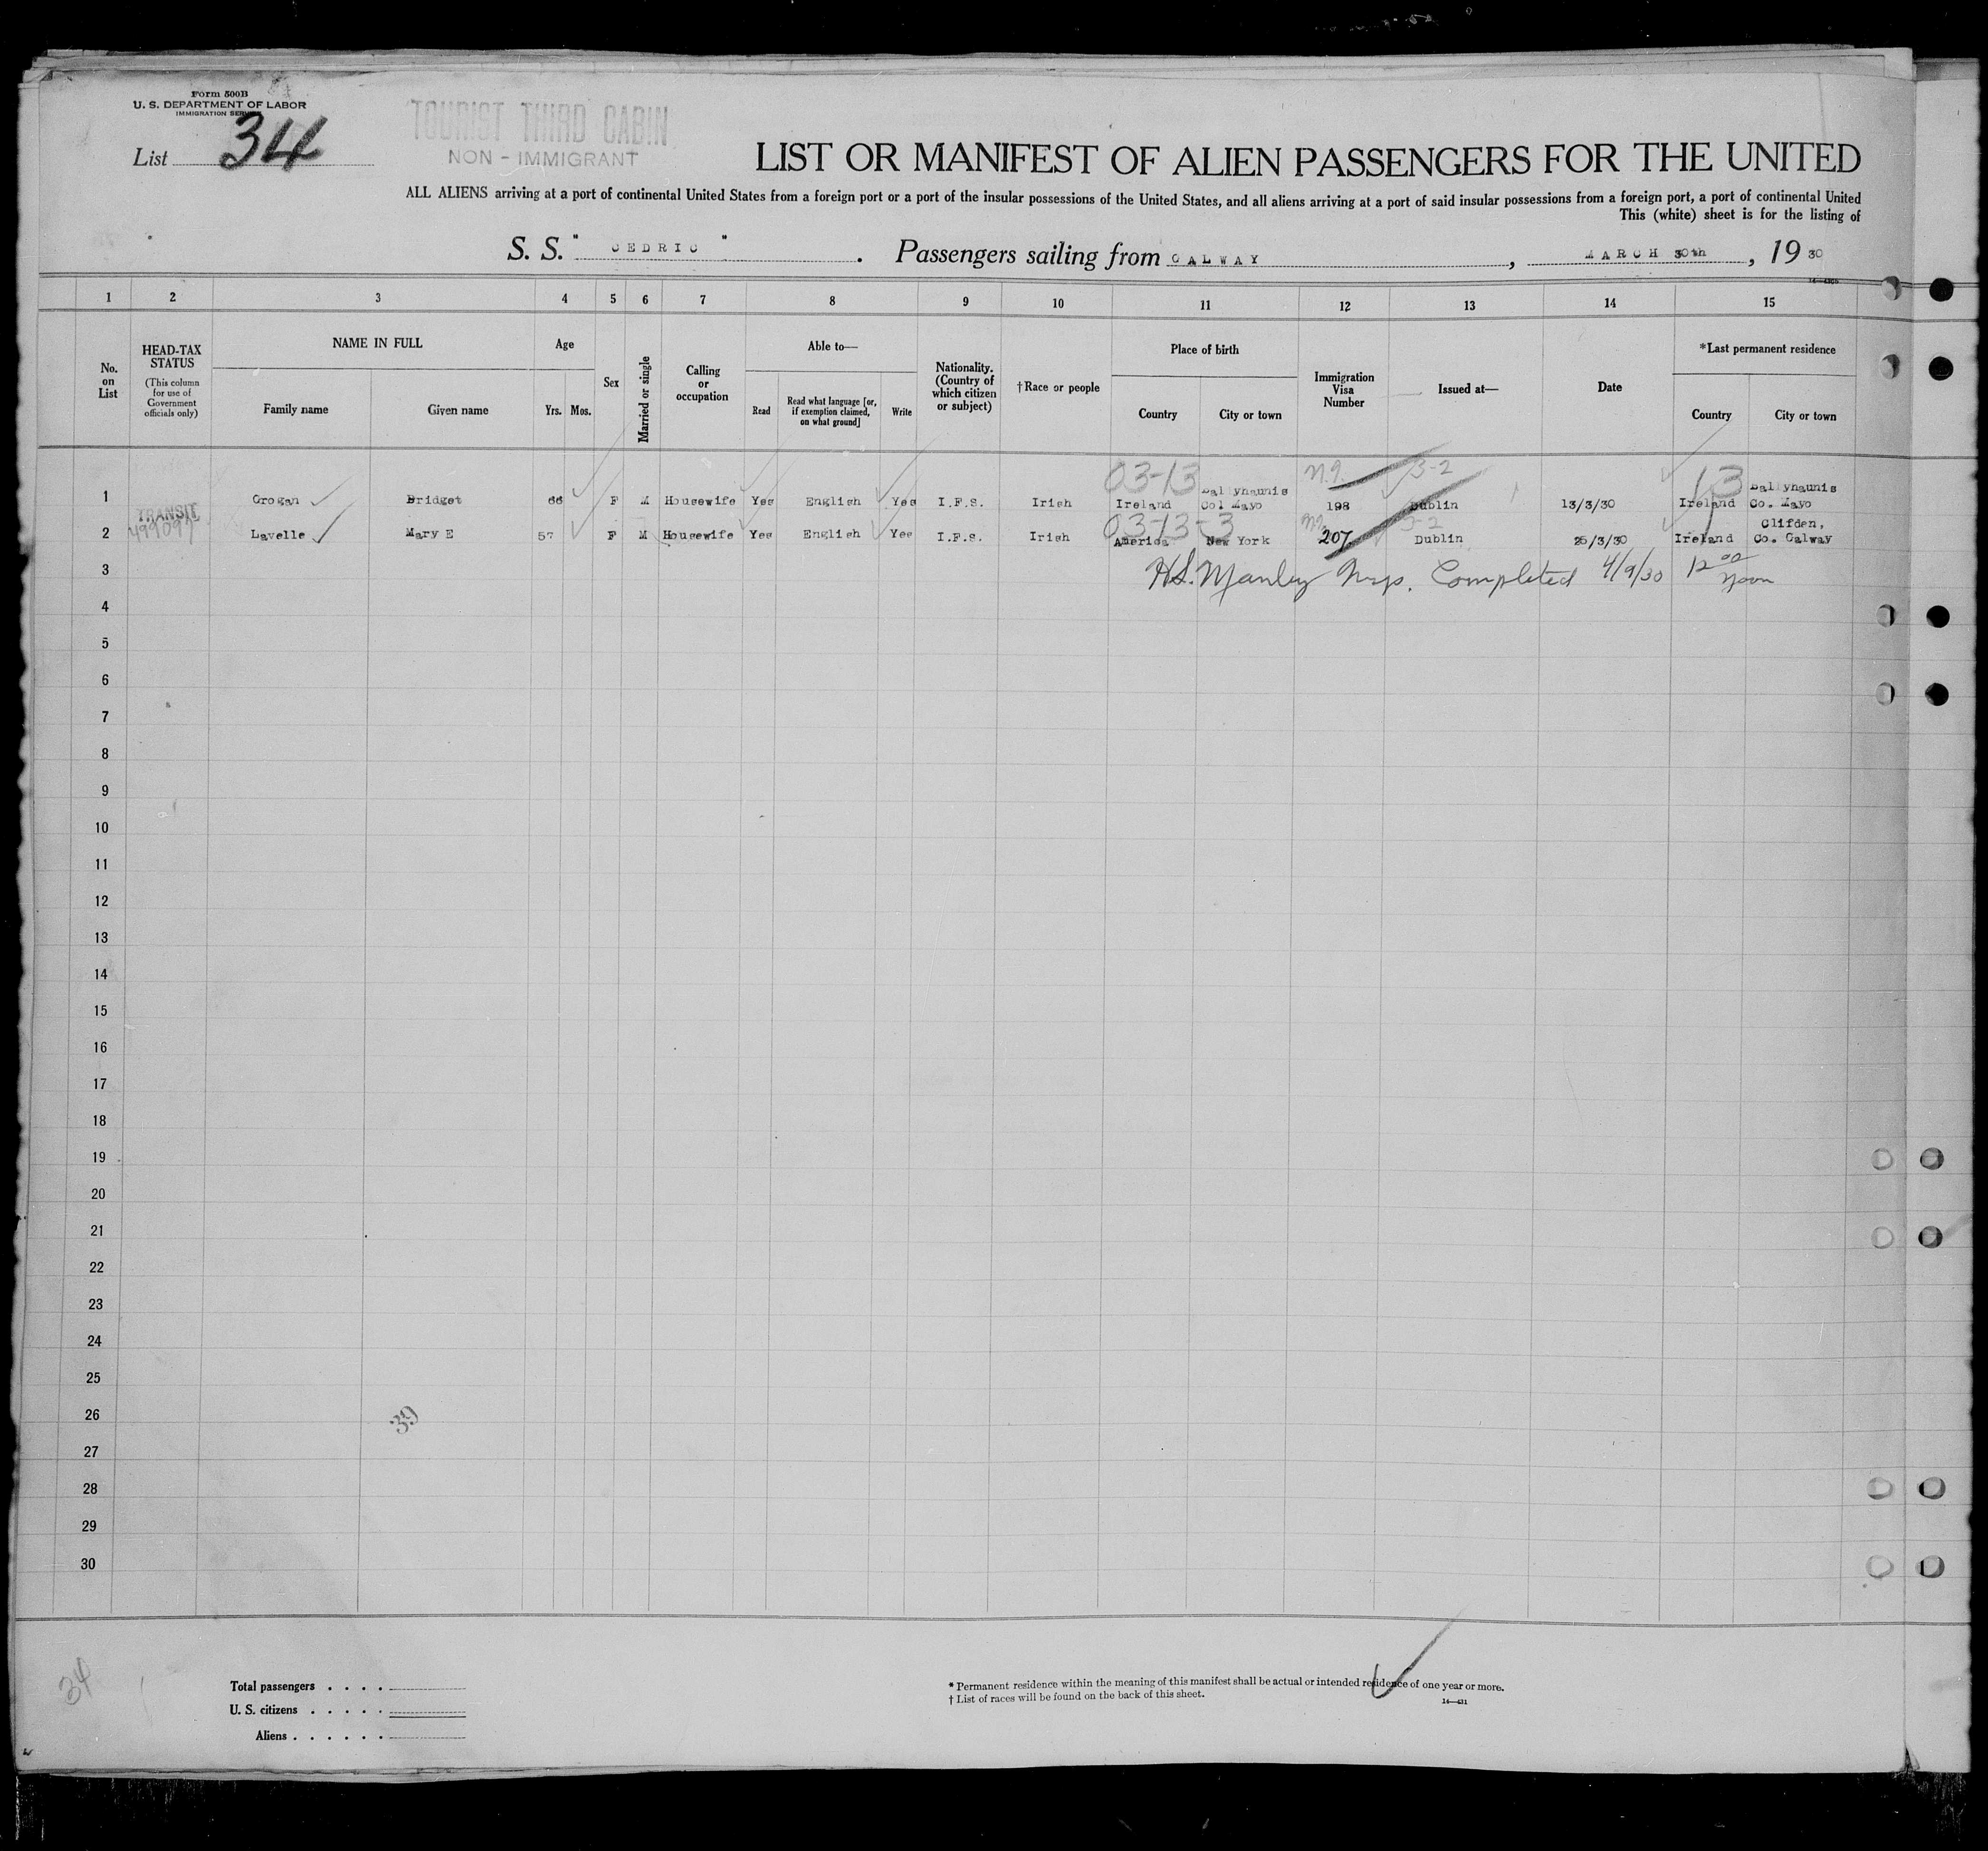 Form 500B
U. S. DEPARTMENT OF LABOR
IMMIGRATION SERVICE
List 34
TOURIST THIRD CABIN
NON - IMMIGRANT
LIST OR MANIFEST OF ALIEN PASSENGERS FOR THE UNITED
ALL ALIENS arriving at a port of continental United States from a foreign port or a port of the insular possessions of the United States, and all aliens arriving at a port of said insular possessions from a foreign port, a port of continental United
This (white) sheet is for the listing of
S. S. " CEDRIC " . Passengers sailing from GALWAY , MARCH 30th , 19 30
1 2 3 4 5 6 7 8 9 10 11 12 13 14 15
No. on List
HEAD-TAX STATUS
(This column for use of Government officials only)
NAME IN FULL
Family name Given name
Age
Yrs. Mos.
Sex
Married or single
Calling or occupation
Able to—
Read
Read what language [or, if exemption claimed, on what ground]
Write
Nationality. (Country of which citizen or subject)
†Race or people
Place of birth
Country City or town
Immigration Visa Number
Issued at—
Date
*Last permanent residence
Country City or town
03-13 3-2 13
1 Grogan Bridget 66 F M Housewife Yes English Yes I.F.S. Irish Ireland Ballyhaunis Co. Mayo 198 Dublin 13/3/30 Ireland Ballyhaunis Co. Mayo
TRANSIT
03-13-3 3-2
2 Lavelle Mary E 57 F M Housewife Yes English Yes I.F.S. Irish America New York 207 Dublin 25/3/30 Ireland Clifden, Co. Galway
3 H.S. Manley Insp. Completed 4/9/30 12 00 noon
4
5
6
7
8
9
10
11
12
13
14
15
16
17
18
19
20
21
22
23
24
25
26
39
27
28
29
30
34
Total passengers . . . .
U. S. citizens . . . . .
Aliens . . . . . .
* Permanent residence within the meaning of this manifest shall be actual or intended residence of one year or more.
† List of races will be found on the back of this sheet.